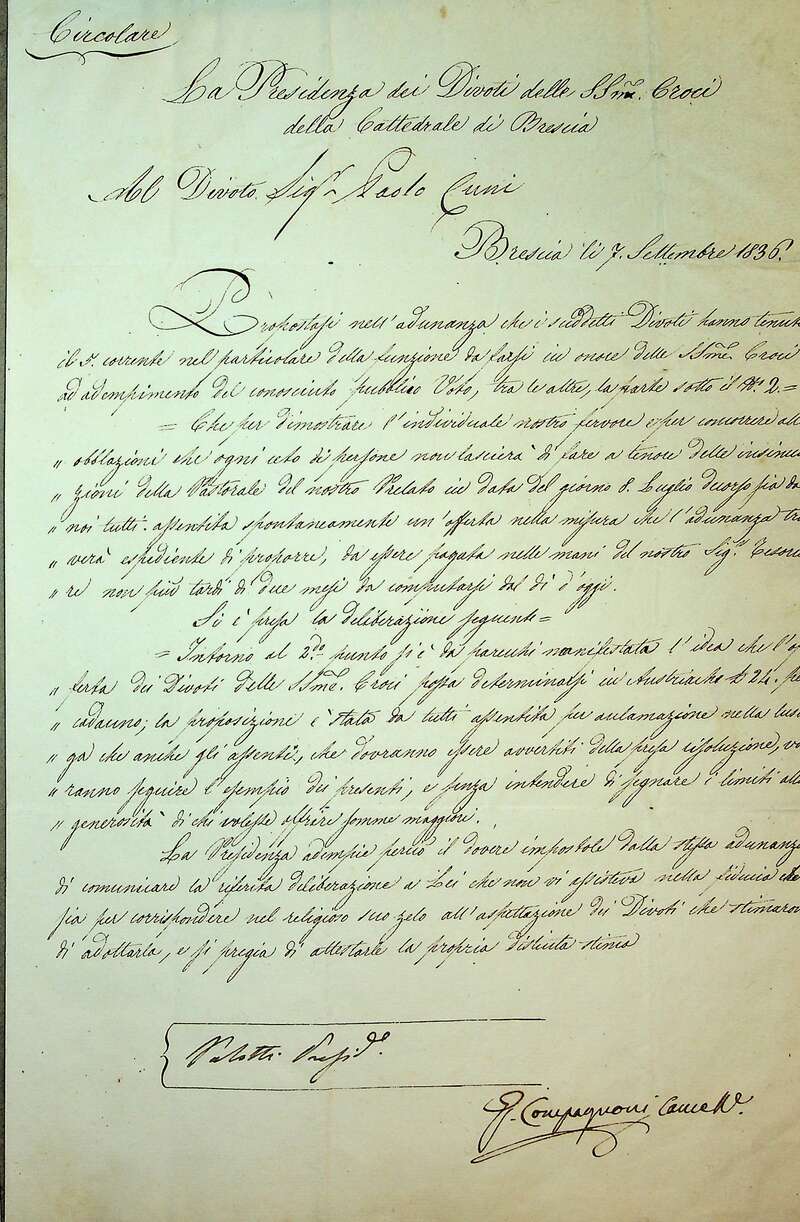 Circolare
La Presidenza dei Divoti delle SSme. Croci
della Cattedrale di Brescia
Al Divoto Sigr. Paolo Cuni
Brescia li 7. Settembre 1836.
Propostasi nell'adunanza che i suddetti Divoti hanno tenuta
il 5. corrente nel particolare della funzione da farsi in onore delle SSme. Croci
ad adempimento del conosciuto pubblico Voto, tra le altre, la parte sotto il No. 2.=
= Che per dimostrare l'individuale nostro fervore e per concorrere alle
" obblazioni che ogni ceto di persone non lascierà di fare a tenore delle insinua
" zioni della Pastorale del nostro Prelato in data del giorno 8. Luglio decorso sia da
" noi tutti assentita spontaneamente un'offerta nella misura che l'adunanza tro
" verà espediente di proporre, da essere pagata nelle mani del nostro Sigr. Tesorie
" re non più tardi di due mesi da computarsi dal dì d'oggi.
Si è presa la deliberazione seguente=
= Intorno al 2do. punto si è da parecchi manifestata l'idea che l'of
" ferta dei Divoti delle SSme. Croci possa determinarsi in Austriache £ 24. per
" cadauno; la proposizione è stata da tutti assentita per acclamazione nella lusin
" ga che anche gli assenti, che dovranno essere avvertiti della presa risoluzione, vor
" ranno seguire l'esempio dei presenti, e senza intendere di segnare i limiti alla
" generosità di chi volesse offrire somme maggiori.
La Presidenza adempie perciò il dovere impostole dalla stessa adunanza
di comunicare la riferita deliberazione a Lei che non vi assisteva nella fiducia che
sia per corrispondere nel religioso suo zelo all'aspettazione dei Divoti che stimaron
di adottarla, e si pregia di attestarle la propria distinta stima
Valotti Preside.
G. Compagnoni Cancelle.